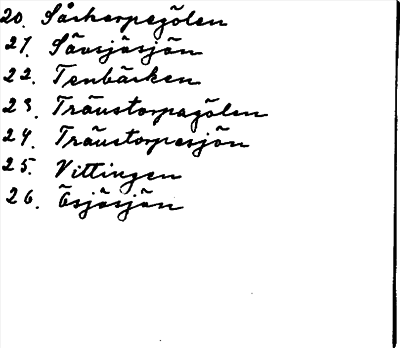 20. Sårhorpegölen
21. Sävsjösjön
22. Tenbäcken
23. Träustorpagölen
24. Träustorpesjön
25. Vittingen
26. Ösjösjön